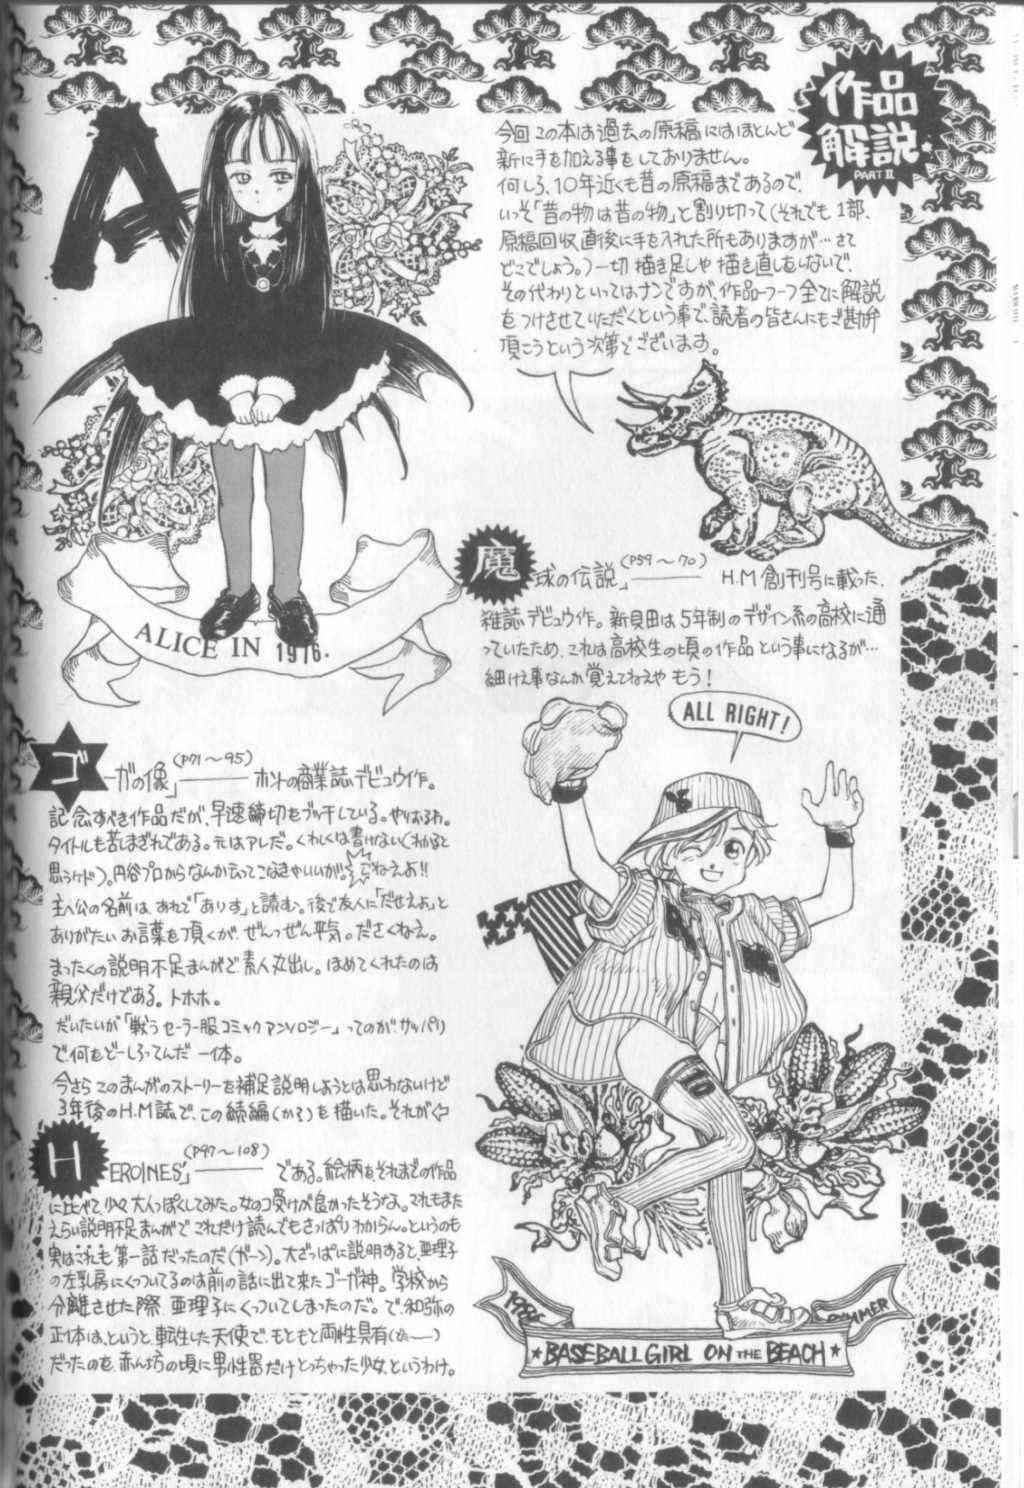 作品
解説
PART II
今回この本は過去の原稿にはほとんど
新に手を加える事をしておりません。
何しろ、10年近くも昔の原稿まであるので、
いっそ「昔の物は昔の物」と割り切って(それでも1部、
原稿回収直後に手を入れた所もありますが…さて
どこでしょう。)一切描き足しや描き直しをしないで、
その代わりといってはナンですが、作品一つ一つ全てに解説
をつけさせていただくという事で、読者の皆さんにもご勘弁
頂こうという次第でございます。
A
ALICE IN 1976.
魔球の伝説」(P59〜70) H.M創刊号に載った、
雑誌デビュウ作。新貝田は5年制のデザイン系の高校に通
っていたため、これは高校生の頃の作品という事になるが…
細けえ事なんか覚えてねえや もう!
ALL RIGHT!
ゴーガの像」(P71〜95) ホントの商業誌デビュウ作。
記念すべき作品だが、早速締切をブッ千している。やりおるわ。
タイトルも苦しまぎれである。元はアレだ。くわしくは書けない(わかると
思うケド)。円谷プロからなんか云ってこなきゃいいが。こねえよ!!
主人公の名前は、あれで「ありす」と読む。後で友人に「だせえよ」と
ありがたいお言葉を頂くが、ぜんっぜん平気。ださくねえ。
まったくの説明不足まんがで素人丸出し。ほめてくれたのは
親父だけである。トホホ。
だいたいが「戦うセーラー服コミックアンソロジー」ってのがサッパリ
で何をどーしろってんだ 一体。
今さらこのまんがのストーリーを補足説明しようとは思わないけど
3年後のH.M誌で、この続編(かな)を描いた。それが
HEROINES」(P97〜108) である。絵柄をそれまでの作品
に比べて少々大人っぽくしてみた。女のコ受けが良かったそうな。これもまた
えらい説明不足まんがでこれだけ読んでもさっぱりわからん。というのも
実はこれも第一話だったのだ(ガーン)。大ざっぱに説明すると、亜理子
の左乳房にくっついてるのは前の話に出て来たゴーガ神。学校から
分離させた際、亜理子にくっついてしまったのだ。で和弥の
正体は、というと、転生した天使で、もともと両性具有
だったのを赤ん坊の頃に男性器だけとっちゃった少女というわけ。
1986 SUMMER
★BASEBALL GIRL ON THE BEACH★